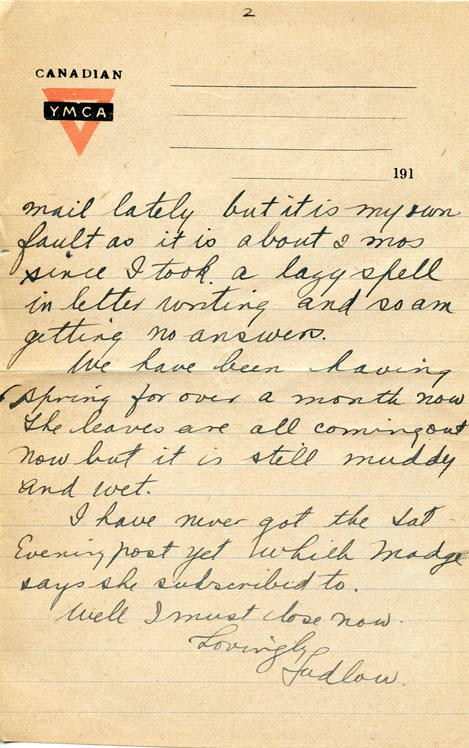 2
CANADIAN
YMCA
191
mail lately but it is my own
fault as it is about 2 mos
since I took a lazy spell
in letter writing and so am
getting no answers.
We have been having
spring for over a month now
The leaves are all coming out
now but it is still muddy
and wet.
I have never got the Sat
Evening post yet which Madge
says she subscribed to.
Well I must close now.
Lovingly
Ludlow.